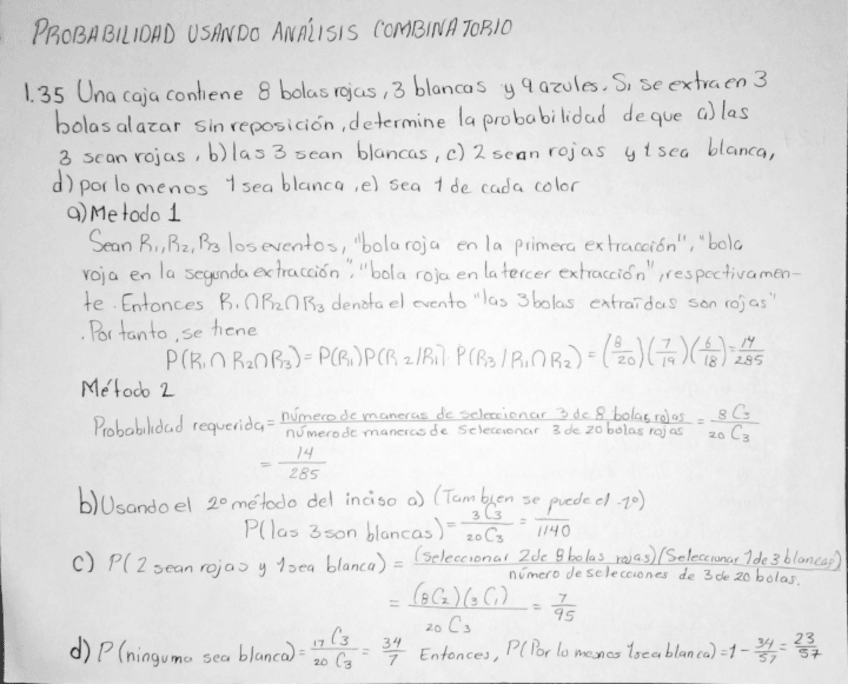 PROBABILIDAD USANDO ANÁLISIS COMBINATORIO
1.35 Una caja contiene 8 bolas rojas, 3 blancas y 9 azules. Si se extraen 3
bolas al azar sin reposición, determine la probabilidad de que a) las
3 sean rojas, b) las 3 sean blancas, c) 2 sean rojas y 1 sea blanca,
d) por lo menos 1 sea blanca, e) sea 1 de cada color
a) Metodo 1
Sean R₁, R₂, R₃ los eventos, "bola roja en la primera extracción", "bola
roja en la segunda extracción", "bola roja en la tercer extracción", respectivamen-
te. Entonces R₁∩R₂∩R₃ denota el evento "las 3 bolas extraídas son rojas"
. Por tanto, se tiene
P(R₁∩R₂∩R₃) = P(R₁)P(R₂/R₁) P(R₃/R₁∩R₂) = (8/20)(7/19)(6/18) = 14/285
Método 2
Probabilidad requerida = número de maneras de seleccionar 3 de 8 bolas rojas / número de maneras de seleccionar 3 de 20 bolas rojas = ₈C₃ / ₂₀C₃
= 14/285
b) Usando el 2º método del inciso a) (Tambien se puede el 1º)
P(las 3 son blancas) = ₃C₃ / ₂₀C₃ = /1140
c) P(2 sean rojas y 1 sea blanca) = (Seleccionar 2 de 8 bolas rojas)(Seleccionar 1 de 3 blancas) / número de selecciones de 3 de 20 bolas.
= (₈C₂)(₃C₁) / ₂₀C₃ = 7/95
d) P(ninguma sea blanca) = ₁₇C₃ / ₂₀C₃ = 34/7 Entonces, P(Por lo menos 1 sea blanca) = 1 - 34/57 = 23/57